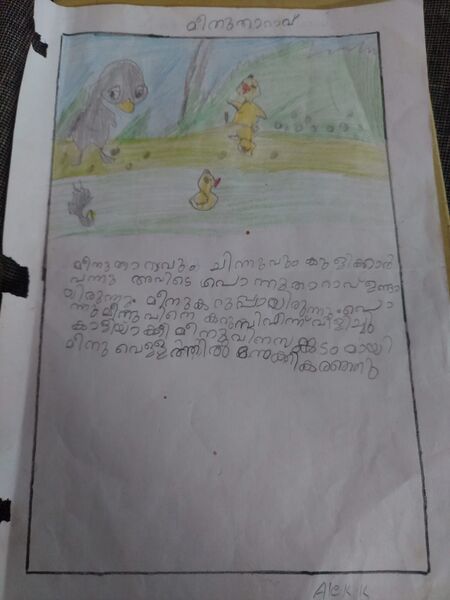 മീനുതാറാവ്
മീനുതാറാവും ചിന്നുവും കുളിക്കാൻ
വന്നു അവിടെ പൊന്നുതാറാവ് ഉണ്ടാ
യിരുന്നു. മീനുകറുപ്പായിരുന്നു. പൊ
ന്നു മീനുവിനെ കറുമ്പിഎന്ന് വിളിച്ചു
കളിയാക്കി മീനുവിന് സങ്കടം മായി
മീനു വെള്ളത്തിൽ നോക്കികരഞ്ഞു
Alek k